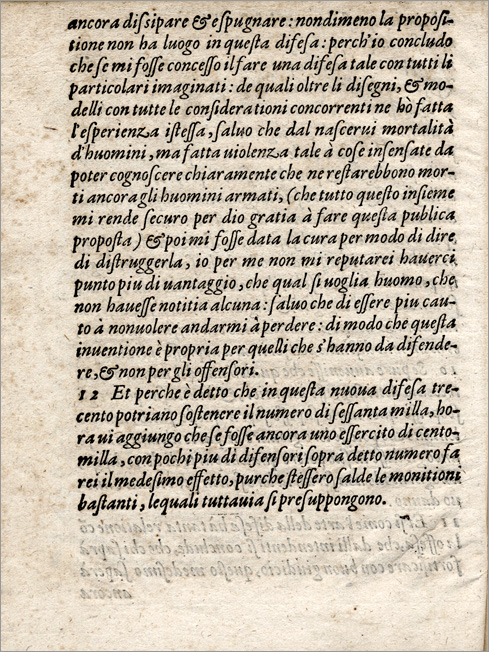 ancora dissipare & espugnare: nondimeno la proposi-
tione non ha luogo in questa difesa: perch'io concludo
che se mi fosse concesso il fare una difesa tale con tutti li
particolari imaginati: de quali oltre li disegni, & mo-
delli con tutte le considerationi concorrenti ne hò fatta
l'esperienza istessa, saluo che dal nascerui mortalità
d'huomini, ma fatta uiolenza tale à cose insensate da
poter cognoscere chiaramente che ne restarebbono mor-
ti ancora gli huomini armati, (che tutto questo insieme
mi rende securo per dio gratia à fare questa publica
proposta) & poi mi fosse data la cura per modo di dire
di distruggerla, io per me non mi reputarei hauerci
punto piu di uantaggio, che qual si uoglia huomo, che
non hauesse notitia alcuna: saluo che di essere piu cau-
to à non uolere andarmi à perdere: di modo che questa
inuentione è propria per quelli che s'hanno da difende-
re, & non per gli offensori.
12 Et perche è detto che in questa nuoua difesa tre-
cento potriano sostenere il numero di sessanta milla, ho-
ra ui aggiungo che se fosse ancora uno essercito di cento-
milla, con pochi piu di difensori sopra detto numero fa
rei il medesimo effetto, pur che stessero salde le monitioni
bastanti, le quali tuttauia si presuppongono.